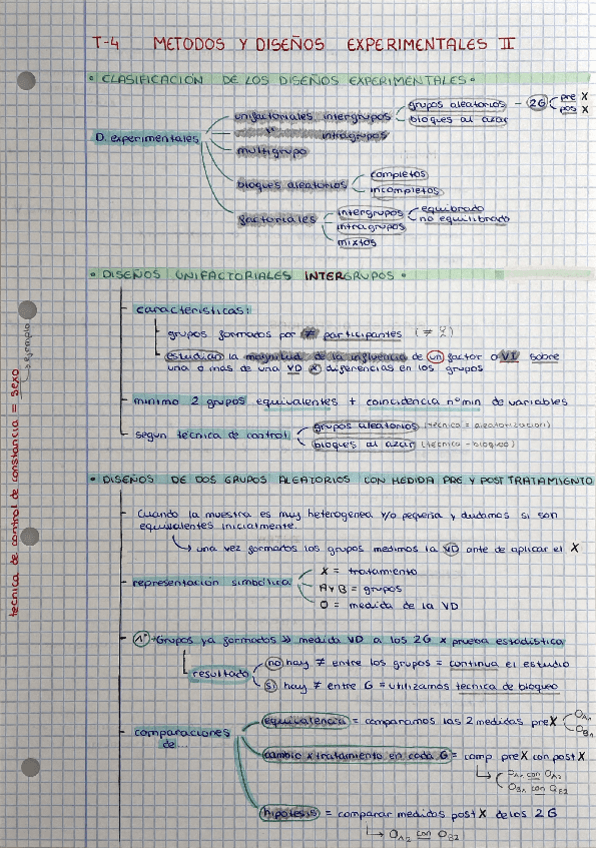 T-4 METODOS Y DISEÑOS EXPERIMENTALES II
• CLASIFICACIÓN DE LOS DISEÑOS EXPERIMENTALES •
D. experimentales
unifactoriales intergrupos
grupos aleatorios - 2G
pre X
pos X
bloques al azar
" intragrupos
multigrupo
bloques aleatorios
completos
incompletos
factoriales
intergrupos
equibrado
no equilibrado
intragrupos
mixtos
• DISEÑOS UNIFACTORIALES INTERGRUPOS •
características:
grupos formados por ≠ participantes
estudian la magnitud de la influencia de un factor o VI sobre
una o más de una VD diferencias en los grupos
mínimo 2 grupos equivalentes + coincidencia nº min de variables
según técnica de control
grupos aleatorios (técnica = aleatorización)
bloques al azar (técnica - bloqueo)
técnica de control de constancia = sexo
→ ejemplo
• DISEÑOS DE DOS GRUPOS ALEATORIOS CON MEDIDA PRE Y POST TRATAMIENTO
Cuando la muestra es muy heterogenea y/o pequeña y dudamos si son
equivalentes inicialmente.
→ una vez formados los grupos medimos la VD ante de aplicar el X
representación simbólica
X = tratamiento
A y B = grupos
O = medida de la VD
1º Grupos ya formados » medida VD a los 2G x prueba estadística
resultado
no hay ≠ entre los grupos = continua el estudio
si hay ≠ entre G = utilizamos técnica de bloqueo
comparaciones
de...
equivalencia = comparamos las 2 medidas preX
OA1
OB1
cambio x tratamiento en cada G = comp preX con postX
OA1 con OA2
OB1 con OB2
hipótesis = comparar medidas postX de los 2G
→ OA2 con OB2